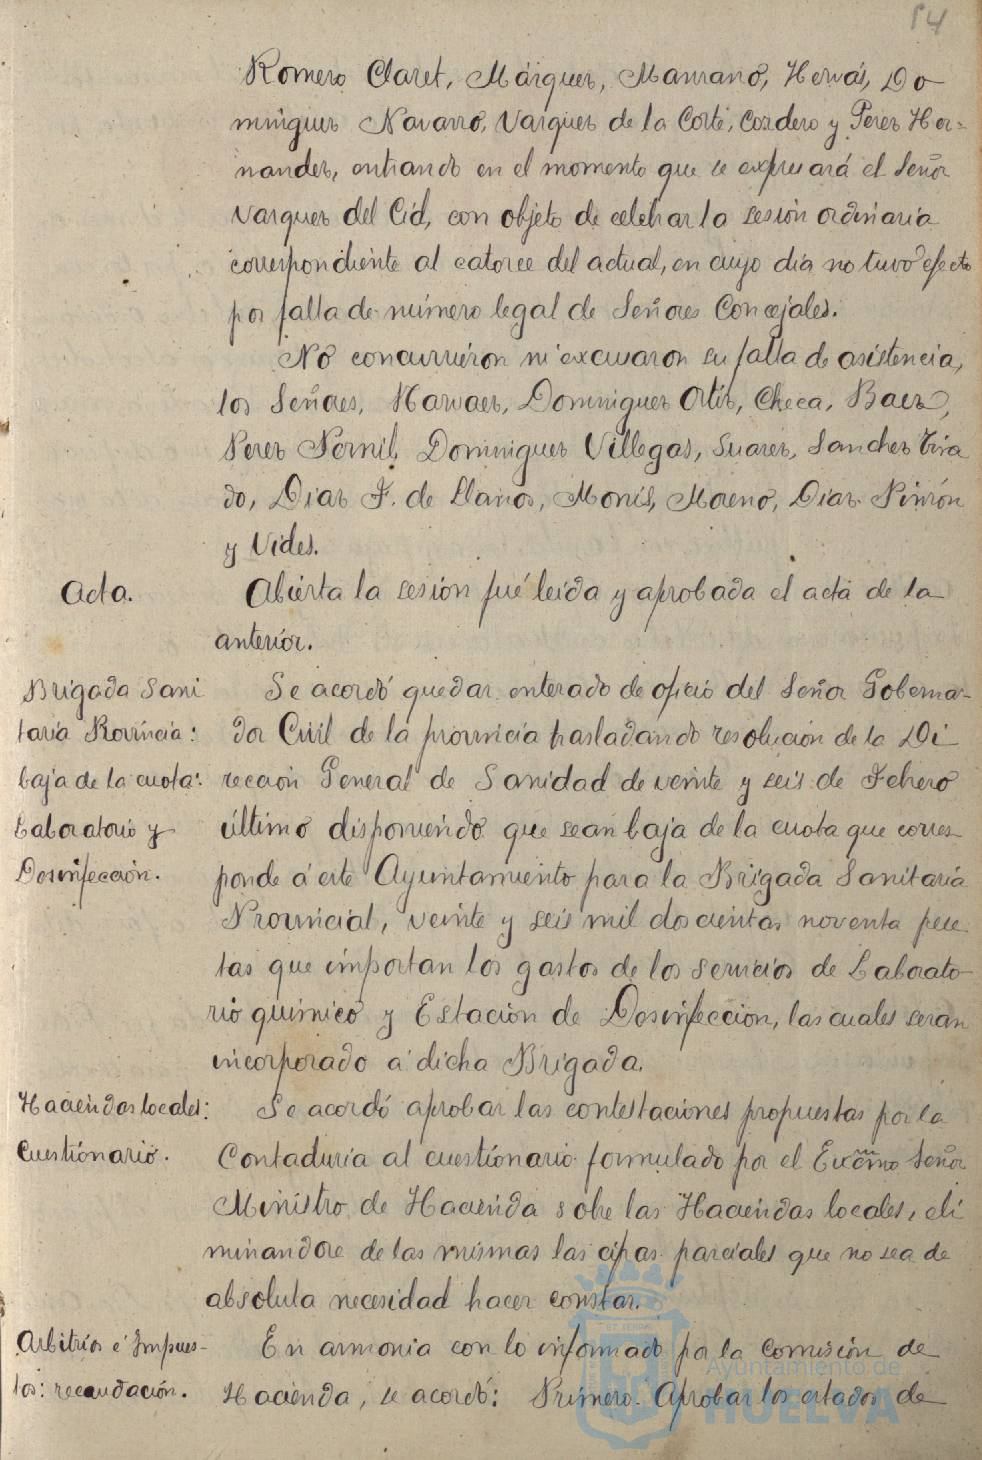 54
Romero Claret, Márquez, Manzano, Hervás, Do
minguez Navarro, Vazquez de la Corte, Cordero y Perez Her-
nandez, entrando en el momento que se expresará el Señor
Vazquez del Cid, con objeto de celebrar la sesión ordinaria
correspondiente al catorce del actual, en cuyo dia no tuvo efecto
por falta de número legal de Señores Concejales.
No concurrieron ni excusaron su falta de asistencia,
los Señores, Narvaez, Dominguez Ortiz, Checa, Baez,
Perez Pernil, Dominguez Villegas, Suarez, Sanchez Tira
do, Diaz F. de Llanos, Monís, Moreno, Diaz Pinzón
y Vides.
Acta.
Abierta la sesión fué leida y aprobada el acta de la
anterior.
Brigada Sani
taria Provincia:
baja de la cuota:
Laboratorio y
Desinfección.
Se acordó quedar enterado de oficio del Señor Goberna-
dor Civil de la provincia trasladando resolución de la Di
rección General de Sanidad de veinte y seis de Febrero
último disponiendo que sean baja de la cuota que corres
ponde á este Ayuntamiento para la Brigada Sanitaria
Provincial, veinte y seis mil doscientas noventa pese
tas que importan los gastos de los servicios de Laborato-
rio quimico y Estación de Desinfección, las cuales serán
incorporado á dicha Brigada.
Haciendas locales:
Cuestionario.
Se acordó aprobar las contestaciones propuestas por la
Contaduria al cuestionario formulado por el Excmo Señor
Ministro de Hacienda sobre las Haciendas locales, eli
minandose de las mismas las cifras parciales que no sea de
absoluta necesidad hacer constar.
Arbitrios é Impues-
tos: recaudación.
En armonia con lo informado por la Comisión de
Hacienda, se acordó: Primero. Aprobar los estados de
Ayuntamiento de
HUELVA